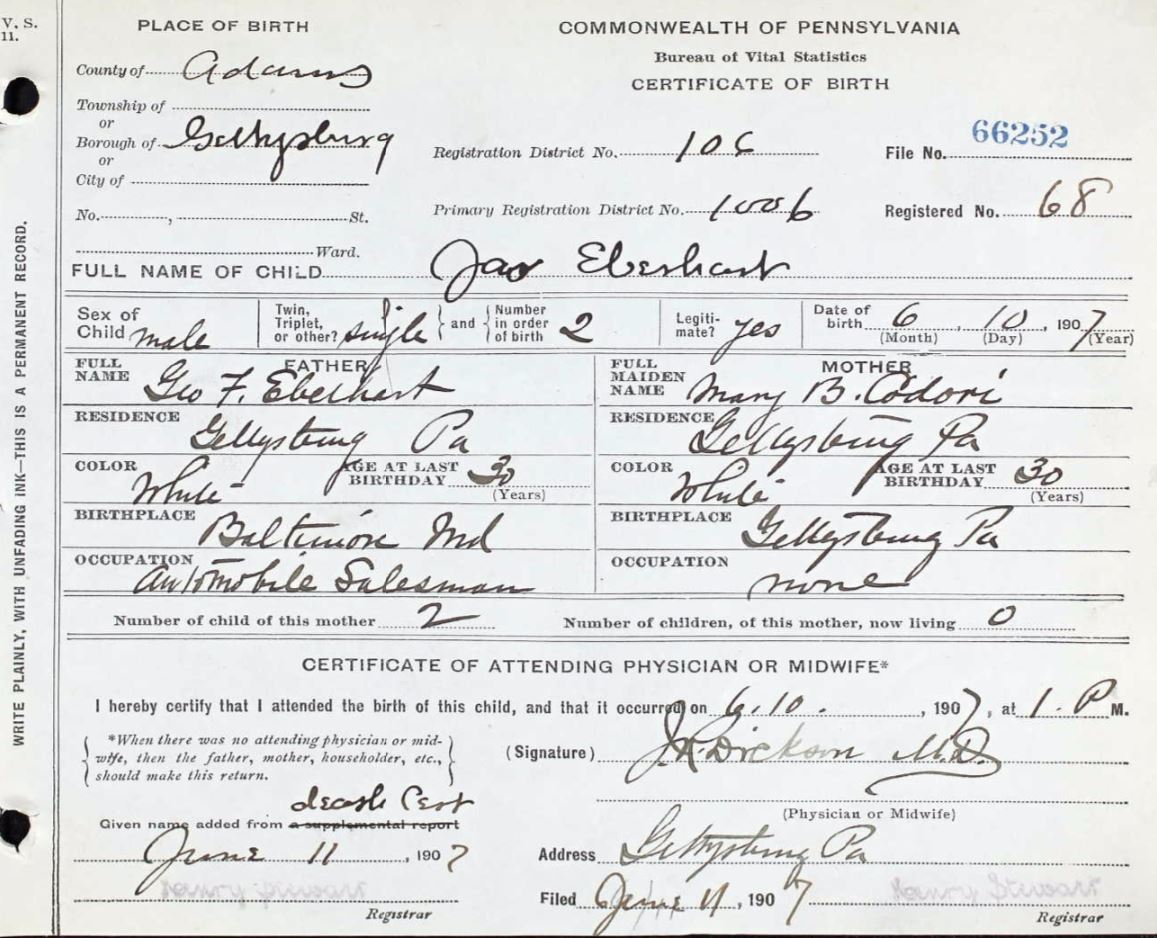 V. S.
11.
PLACE OF BIRTH
COMMONWEALTH OF PENNSYLVANIA
Bureau of Vital Statistics
CERTIFICATE OF BIRTH
County of Adams
Township of
or
Borough of Gettysburg
or
City of
No. , St.
Ward.
Registration District No. 106
File No. 66252
Primary Registration District No. 1006
Registered No. 68
FULL NAME OF CHILD Jas Eberhart
Sex of Child male
Twin, Triplet, or other? single and Number in order of birth 2
Legiti-mate? yes
Date of birth 6, 10, 1907
(Month) (Day) (Year)
FATHER
FULL NAME Geo F. Eberhart
MOTHER
FULL MAIDEN NAME Mary B. Codori
RESIDENCE Gettysburg Pa
RESIDENCE Gettysburg Pa
COLOR White AGE AT LAST BIRTHDAY 30
(Years)
COLOR White AGE AT LAST BIRTHDAY 30
(Years)
BIRTHPLACE Baltimore Md
BIRTHPLACE Gettysburg Pa
OCCUPATION Automobile Salesman
OCCUPATION none
Number of child of this mother 2 Number of children, of this mother, now living 0
CERTIFICATE OF ATTENDING PHYSICIAN OR MIDWIFE*
I hereby certify that I attended the birth of this child, and that it occurred on 6.10., 1907, at 1. P M.
*When there was no attending physician or mid-
wife, then the father, mother, householder, etc.,
should make this return.
(Signature) J. K. Dickson M.D.
(Physician or Midwife)
death Cert
Given name added from a supplemental report
June 11, 1907
Address Gettysburg Pa
Henry Stewart
Registrar
Filed June 11, 1907 Henry Stewart
Registrar
WRITE PLAINLY, WITH UNFADING INK—THIS IS A PERMANENT RECORD.